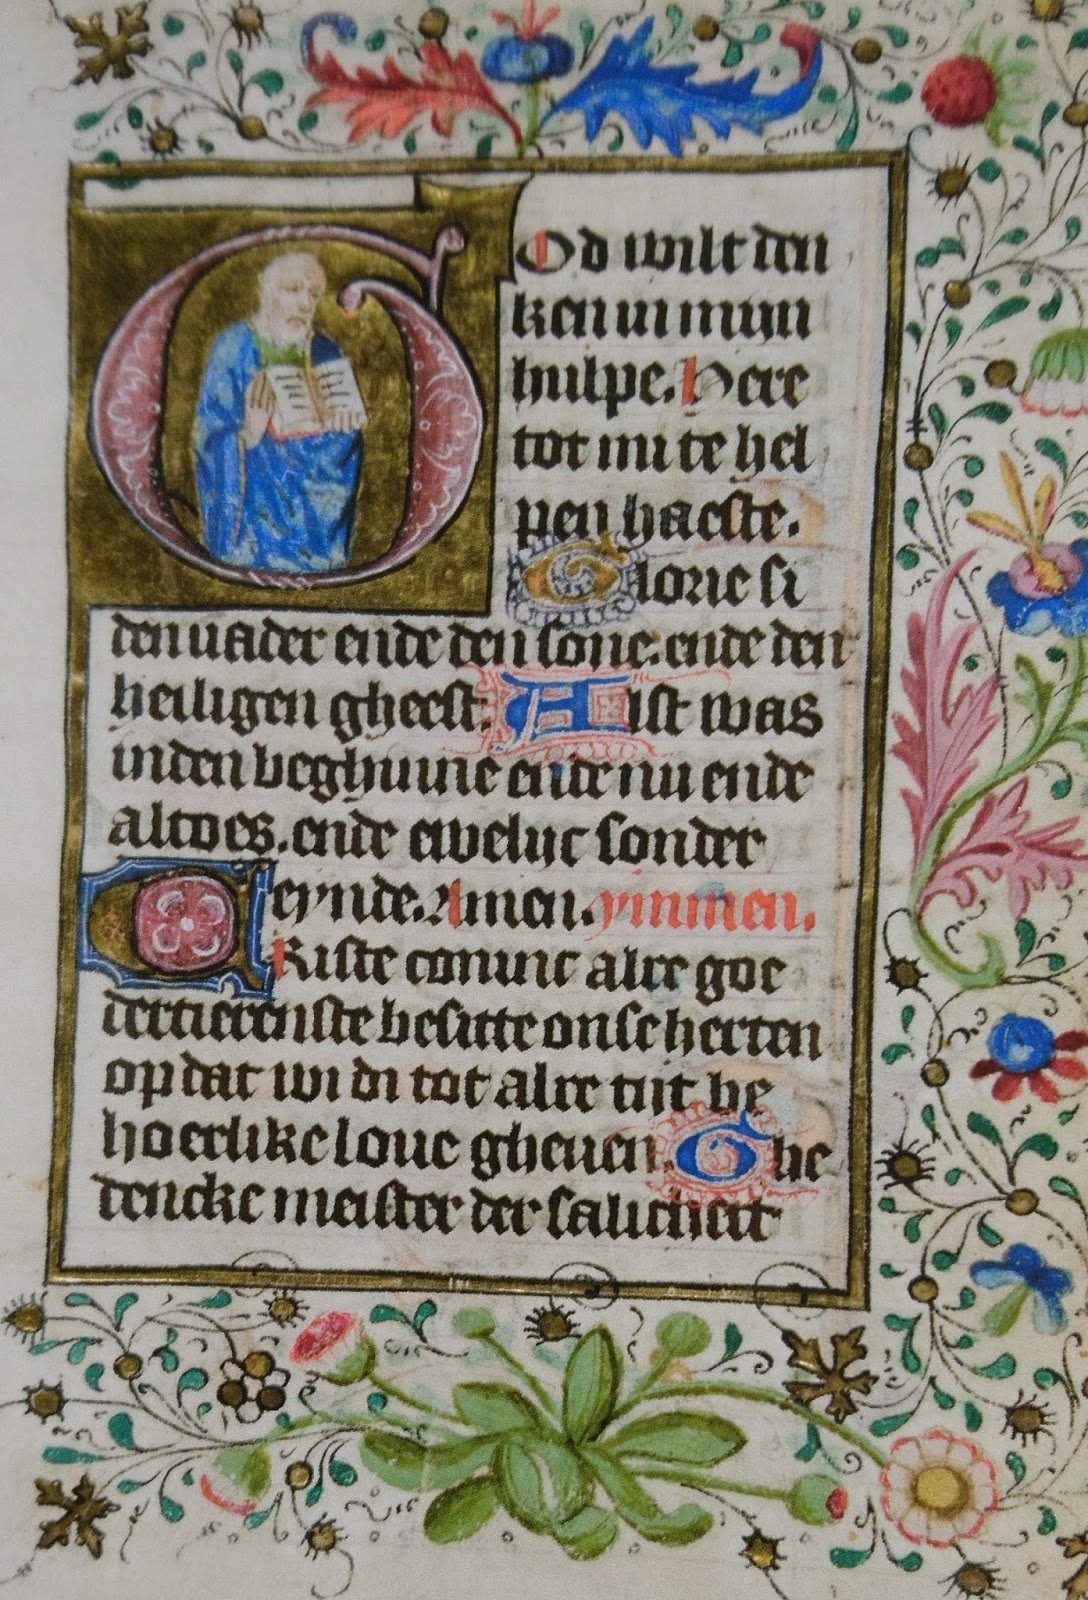 God wilt den
ken in mijn
hulpe. Here
tot mi te hel
pen haeste.
Glorie si
den vader ende den sone. ende den
heiligen gheest. Alst was
inden beghinne ende nu ende
altoes. ende ewelijc sonder
eynde. Amen. ymmen.
CRiste coninc alre goe
dertierenste besitte onse herten
op dat wi di tot alre tijt be
hoerlike loue gheuen. Ghe
dencke meister der salicheit